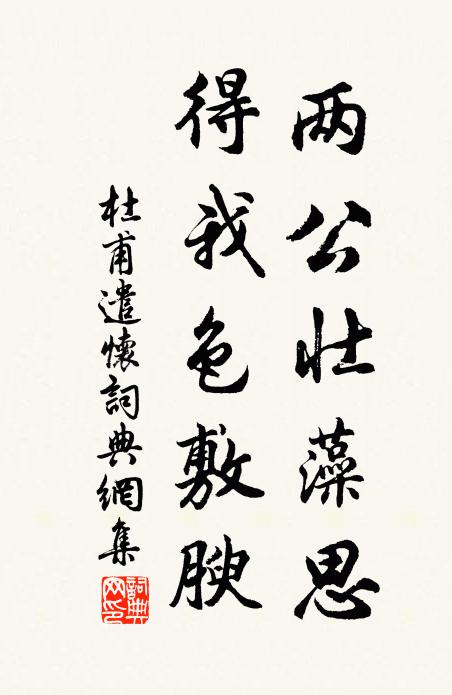 两公壮藻思
得我色敷腴
杜甫遣懷詞典網集
詞典網印